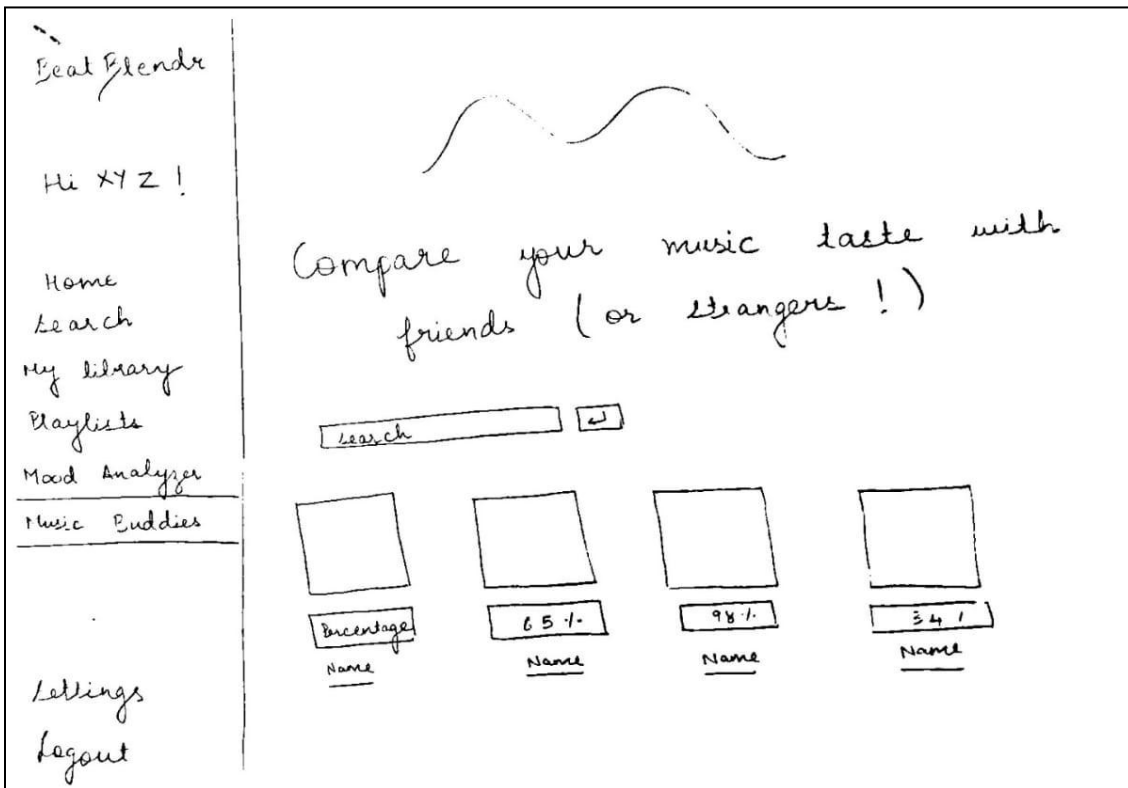 Beat Blendr
Hi XYZ !
Home
Search
My library
Playlists
Mood Analyzer
Music Buddies
Settings
Logout
Compare your music taste with
friends (or strangers !)
Search
Percentage
65%
98%
34%
Name
Name
Name
Name